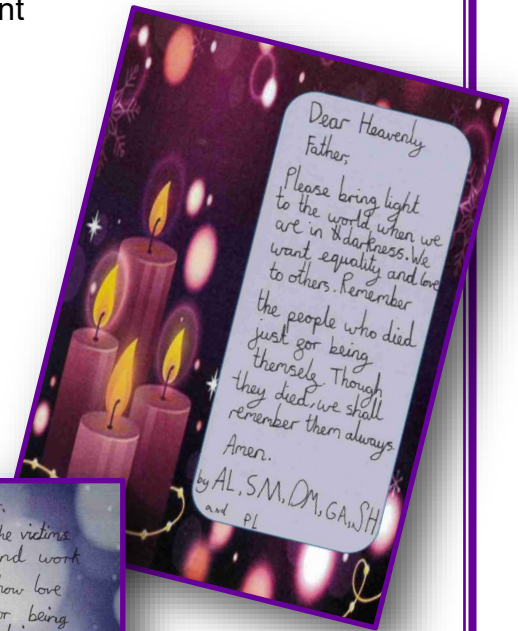 nt
Dear Heavenly
Father,
Please bring light
to the world when we
are in darkness. We
want equality and love
to others. Remember
the people who died
just gor being
themselg. Though
they died, we shall
remember them always.
Amen.
by AL, SM, DM, GA, SH
and PL
he victims
nd work
how love
or being